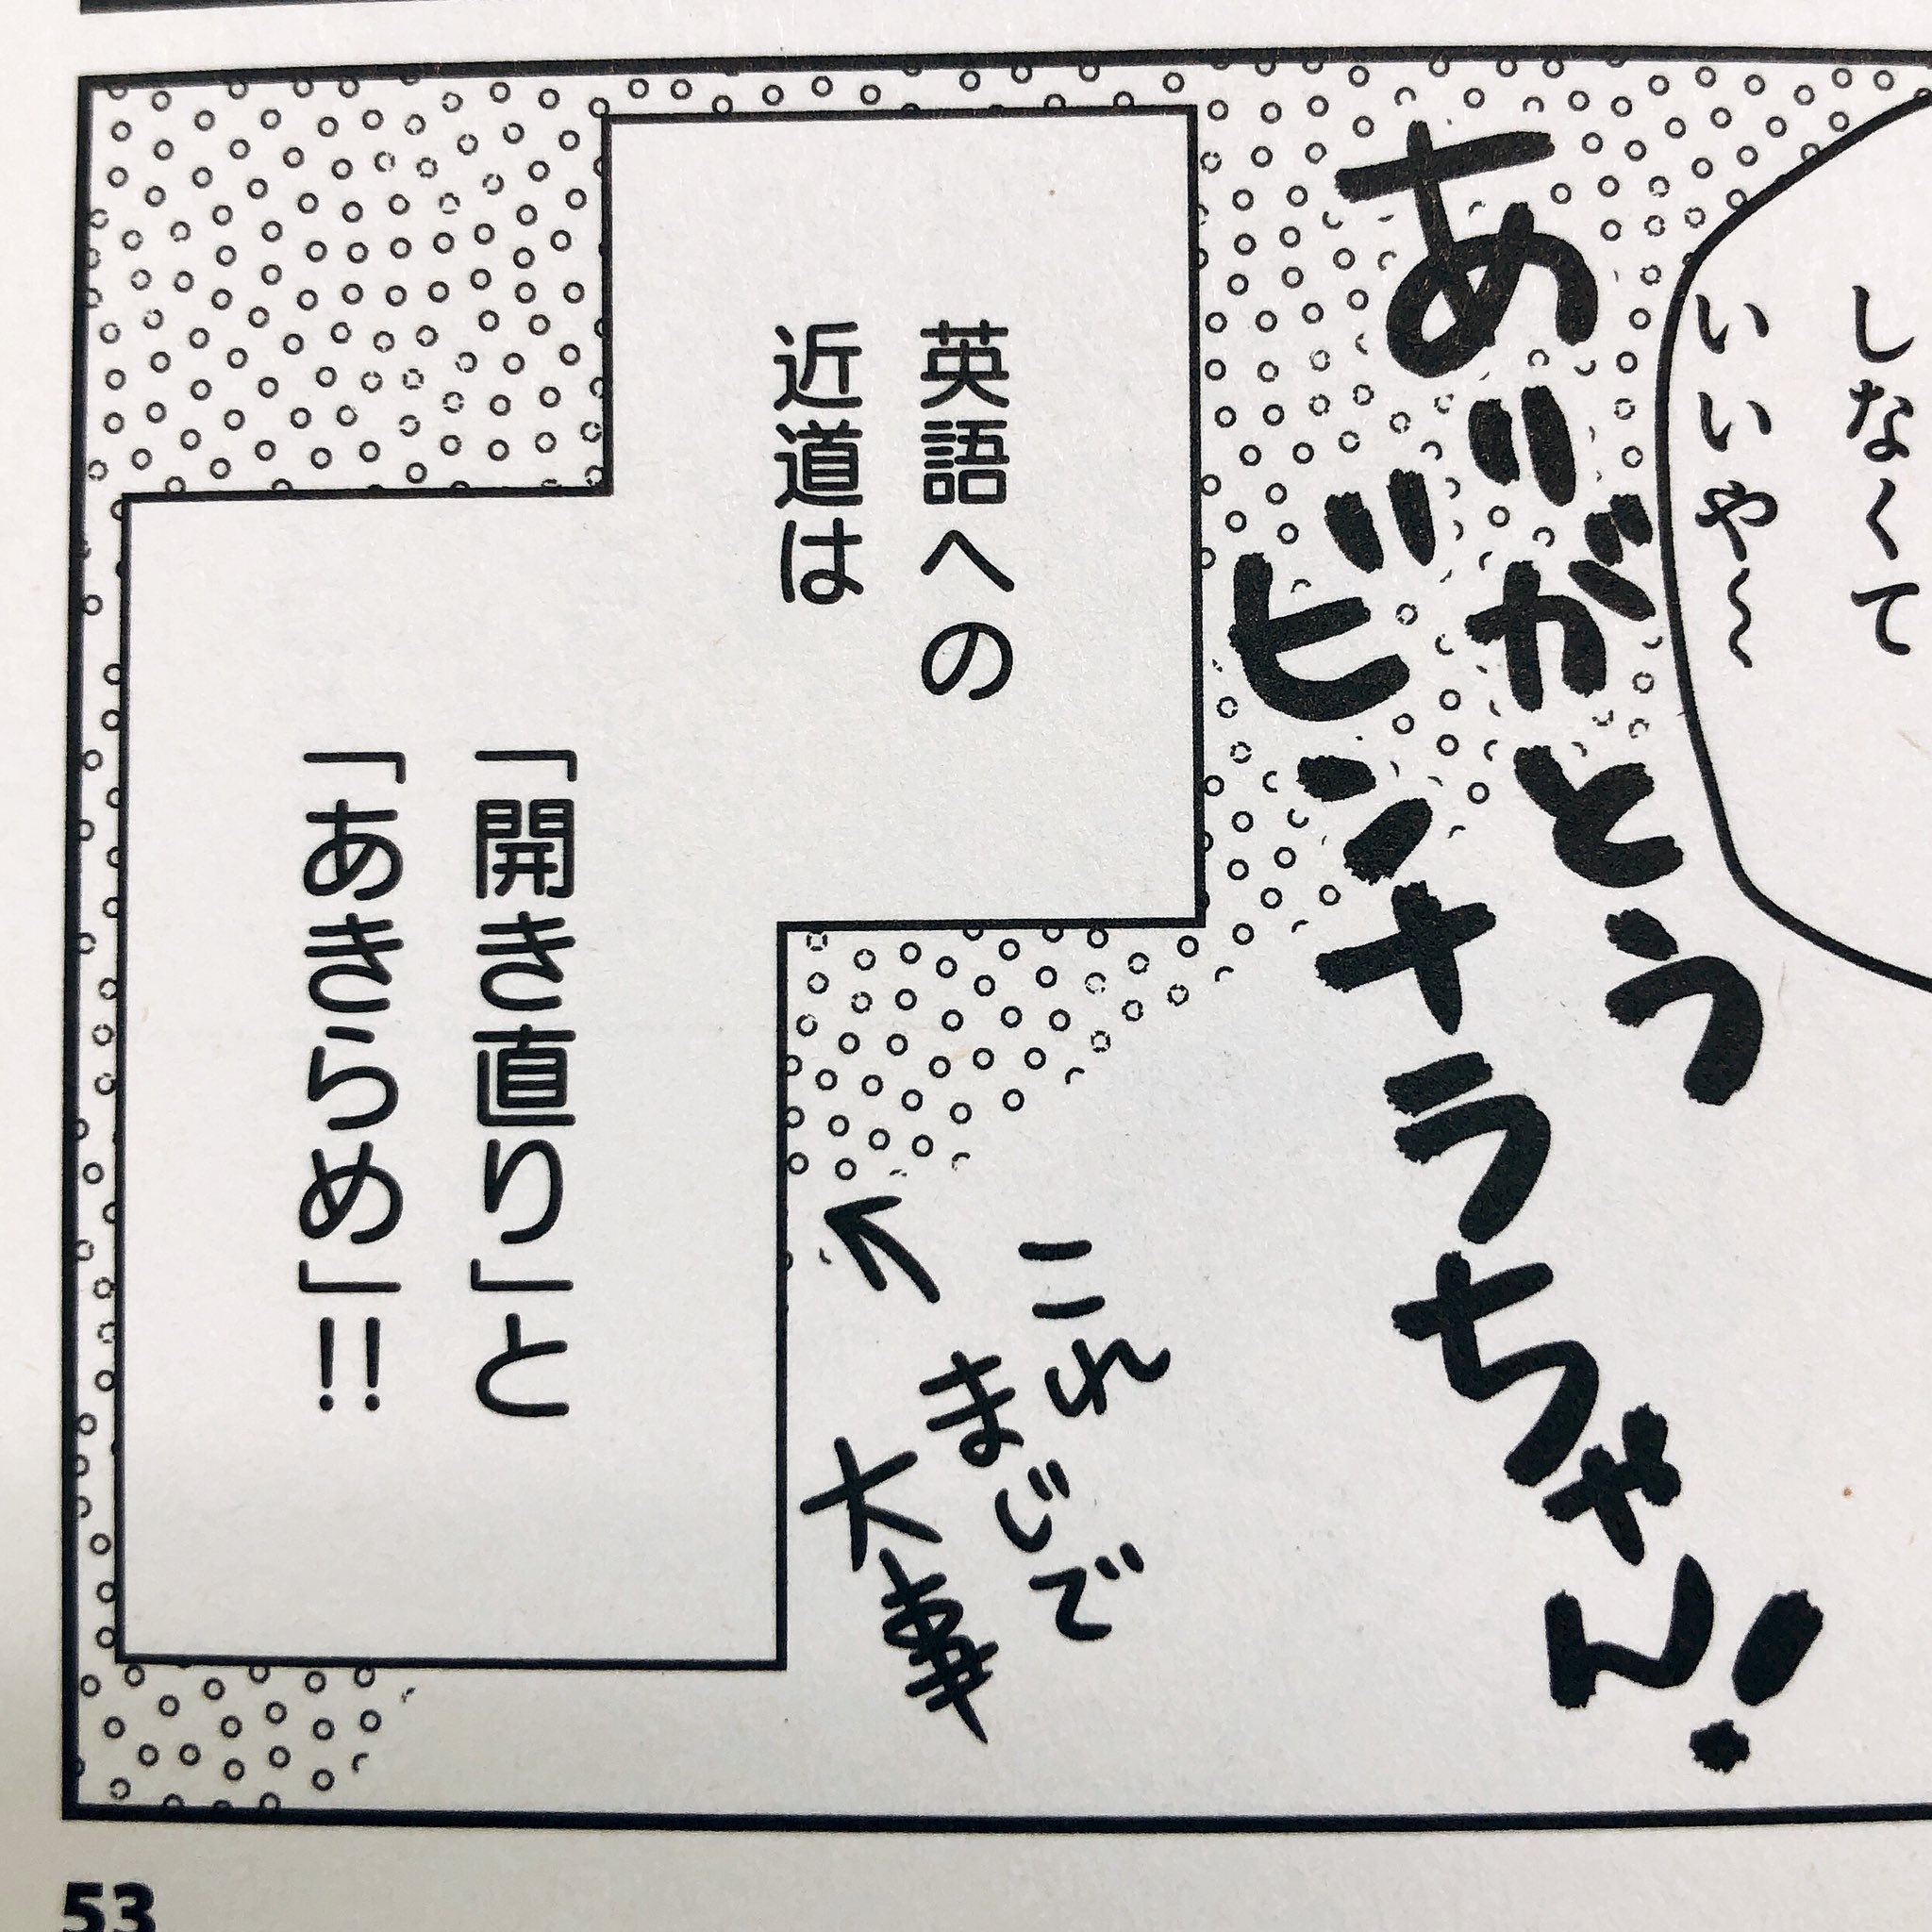 しなくて
いいや〜
ありがとう
ビンナラちゃん!
英語への
近道は
「開き直り」と
「あきらめ」!!
これ
まじで
大事
53